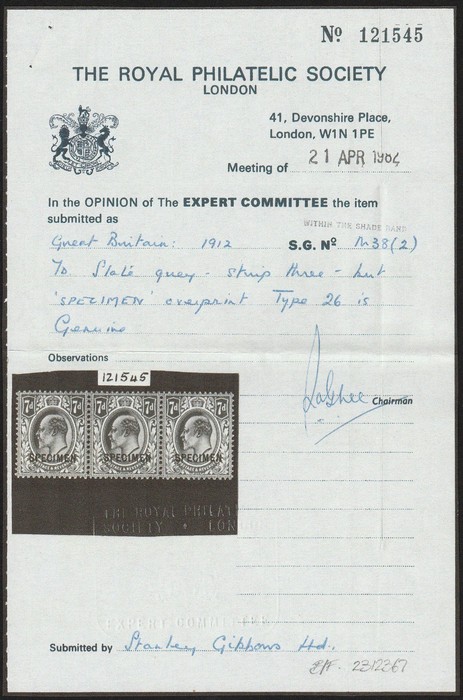 No 121545
THE ROYAL PHILATELIC SOCIETY
LONDON
41, Devonshire Place,
London, W1N 1PE
Meeting of 21 APR 1984
In the OPINION of The EXPERT COMMITTEE the item
submitted as
WITHIN THE SHADE BAND
Great Britain: 1912 S.G. No M38(2)
7D. Slate grey - strip three - but
'SPECIMEN' overprint Type 26 is
Genuine
Observations
121545
Chairman
7d 7d 7d 7d 7d 7d
SPECIMEN SPECIMEN SPECIMEN
THE ROYAL PHILAT
SOCIETY • LONDO
EXPERT COMMITTEE
Submitted by Stanley Gibbons Ltd.
2312367